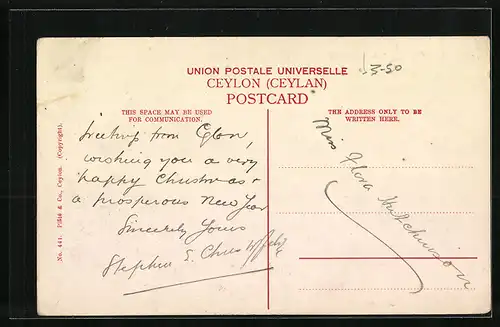 13-50
UNION POSTALE UNIVERSELLE
CEYLON (CEYLAN)
POSTCARD
THIS SPACE MAY BE USED
FOR COMMUNICATION.
THE ADDRESS ONLY TO BE
WRITTEN HERE.
No. 441. Plâté & Co., Ceylon. (Copyright).
from
wishing you a very
happy Christmas &
a prosperous New Year
Sincerely Yours
Stephen E.
Miss Flora Hutchinson